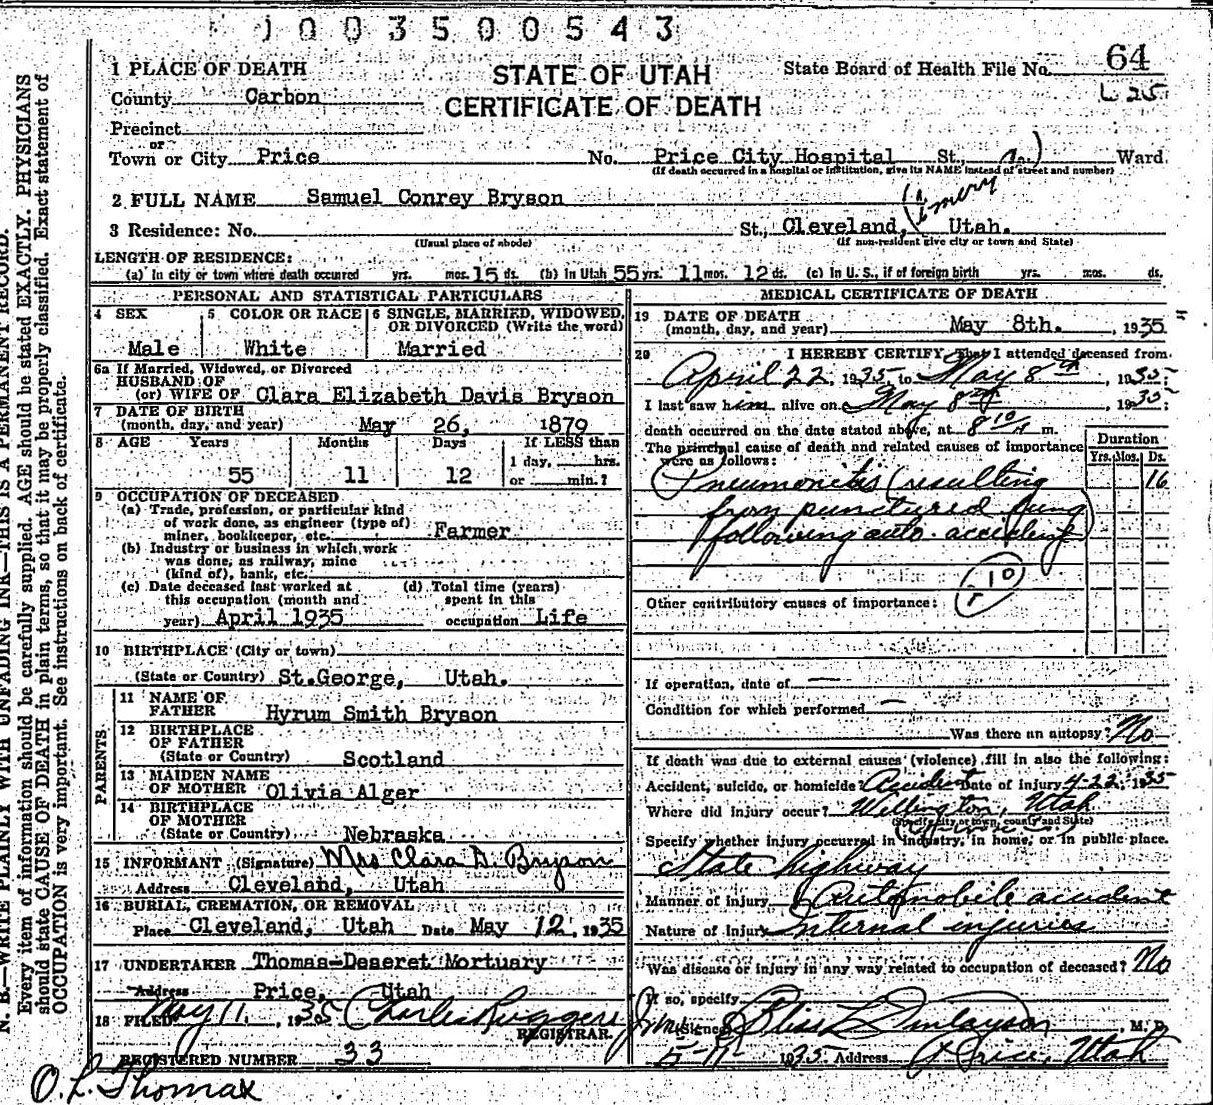 1003500543
64
STATE OF UTAH
CERTIFICATE OF DEATH
State Board of Health File No.
L 25
1 PLACE OF DEATH
County Carbon
Precinct
or
Town or City Price No. Price City Hospital St., Ward
(If death occurred in a hospital or institution, give its NAME instead of street and number)
2 FULL NAME Samuel Conrey Bryson
(Emery
3 Residence: No. St., Cleveland, Utah.
(Usual place of abode) (If non-resident give city or town and State)
LENGTH OF RESIDENCE:
(a) In city or town where death occurred yrs. mos. 15 ds. (b) In Utah 55 yrs. 11 mos. 12 ds. (c) In U. S., if of foreign birth yrs. mos. ds.
PERSONAL AND STATISTICAL PARTICULARS
4 SEX
Male
5 COLOR OR RACE
White
6 SINGLE, MARRIED, WIDOWED,
OR DIVORCED (Write the word)
Married
6a If Married, Widowed, or Divorced
HUSBAND OF
(or) WIFE OF Clara Elizabeth Davis Bryson
7 DATE OF BIRTH
(month, day, and year) May 26, 1879
8 AGE Years Months Days If LESS than
1 day, hrs.
55 11 12 or min.?
9 OCCUPATION OF DECEASED
(a) Trade, profession, or particular kind
of work done, as engineer (type of)
miner, bookkeeper, etc. Farmer
(b) Industry or business in which work
was done, as railway, mine
(kind of), bank, etc.
(c) Date deceased last worked at
this occupation (month and
year) April 1935
(d) Total time (years)
spent in this
occupation Life
10 BIRTHPLACE (City or town)
(State or Country) St.George, Utah.
PARENTS
11 NAME OF
FATHER Hyrum Smith Bryson
12 BIRTHPLACE
OF FATHER
(State or Country) Scotland
13 MAIDEN NAME
OF MOTHER Olivia Alger
14 BIRTHPLACE
OF MOTHER
(State or Country) Nebraska
15 INFORMANT (Signature) Mrs Clara D. Bryson
Address Cleveland, Utah
16 BURIAL, CREMATION, OR REMOVAL
Place Cleveland, Utah Date May 12, 1935
17 UNDERTAKER Thomas-Deseret Mortuary
Address Price, Utah
18 FILED May 11, 1935 Charles Ruggeri
REGISTRAR.
REGISTERED NUMBER 33
O. L. Thomas
MEDICAL CERTIFICATE OF DEATH
19 DATE OF DEATH
(month, day, and year) May 8th. , 1935
20 I HEREBY CERTIFY, That I attended deceased from
April 22, 1935 to May 8th, 1935;
I last saw him alive on May 8th, 1935;
death occurred on the date stated above, at 8 10 m.
The principal cause of death and related causes of importance
were as follows:
Duration
Yrs. Mos. Ds.
Pneumonitis (resulting 16
from punctured lung
following auto. accident)
10
Other contributory causes of importance:
If operation, date of —
Condition for which performed —
Was there an autopsy? No
If death was due to external causes (violence) fill in also the following:
Accident, suicide, or homicide Accident Date of injury 4-22, 1935
Where did injury occur? Wellington, Utah
(Specify city or town, county and State)
Specify whether injury occurred in industry, in home, or in public place.
State highway
Manner of injury Automobile accident
Nature of Injury Internal injuries
Was disease or injury in any way related to occupation of deceased? No
If so, specify
(Signed) Bliss L Finlayson, M. D.
5-11 1935 Address Price, Utah
N. B.—WRITE PLAINLY WITH UNFADING INK—THIS IS A PERMANENT RECORD.
Every item of information should be carefully supplied. AGE should be stated EXACTLY. PHYSICIANS
should state CAUSE OF DEATH in plain terms, so that it may be properly classified. Exact statement of
OCCUPATION is very important. See instructions on back of certificate.